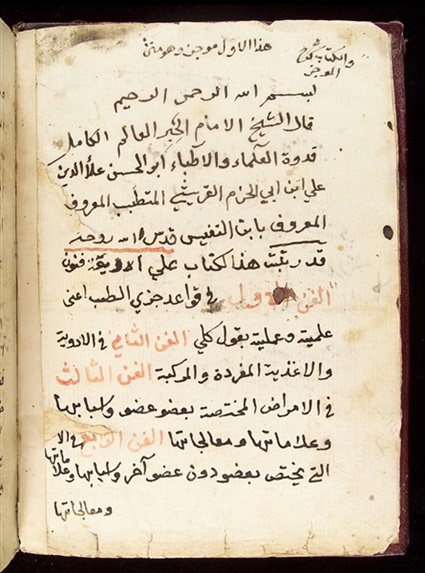 هذا الاول موجز وهو متن
والكتاب شرح
الموجز
بسم الله الرحمن الرحيم
قال الشيخ الامام الحبر العالم الكامل
قدوة العلماء والاطباء ابو الحسن علاء الدين
علي ابن ابي الحزم القرشي المتطبب المعروف
المعروف بابن النفيس قدس الله روحه
قد رتبت هذا كتاب علي اربعة فنون
الفن الاول في قواعد جزي الطب اعني
علمية وعملية بقول كلي الفن الثاني في الادوية
والاغذية المفردة والمركبة الفن الثالث
في الامراض المختصة بعضو عضو واسبابها
وعلاماتها ومعالجاتها الفن الرابع في الا
التي يختص بعضو دون عضو آخر واسبابها وعلا
ماتها
ومعالجاتها